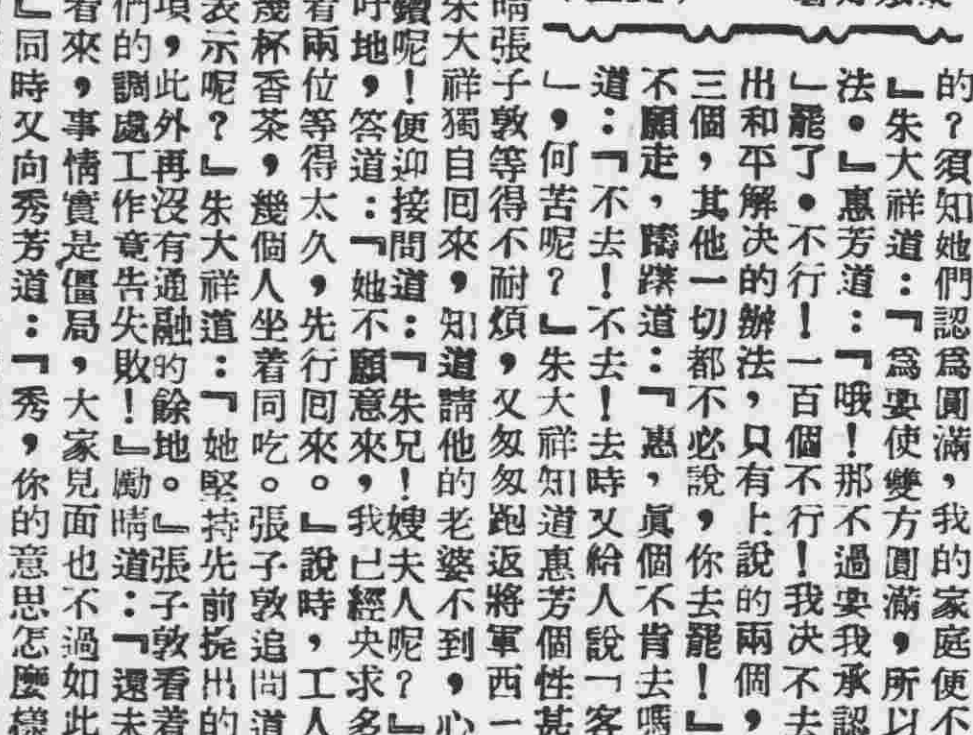 的?須知她們認爲圓滿,我的家庭便不
』朱大祥道:『爲要使雙方圓滿,所以
法。』惠芳道:『哦!那不過要我承認
」罷了。不行!一百個不行!我决不去
出和平解决的辦法,只有上說的兩個,
三個,其他一切都不必說,你去罷!』
不願走,躊躇道:『惠,眞個不肯去嗎
道:『不去!不去!去時又給人說「客
」,何苦呢?』朱大祥知道惠芳個性甚
晴張子敦等得不耐煩,又匆匆跑返將軍西一
朱大祥獨自囘來,知道請他的老婆不到,心
鑽呢!便迎接問道:『朱兄!嫂夫人呢?』
吁地,答道:『她不願意來,我已經央求多
看兩位等得太久,先行囘來。』說時,工人
幾杯香茶,幾個人坐着同吃。張子敦追問道
表示呢?』朱大祥道:『她堅持先前提出的
項,此外再沒有通融的餘地。』張子敦看着
們的調處工作竟告失敗!』勵晴道:『還未
看來,事情實是僵局,大家見面也不過如此
』同時又向秀芳道:『秀,你的意思怎麼樣